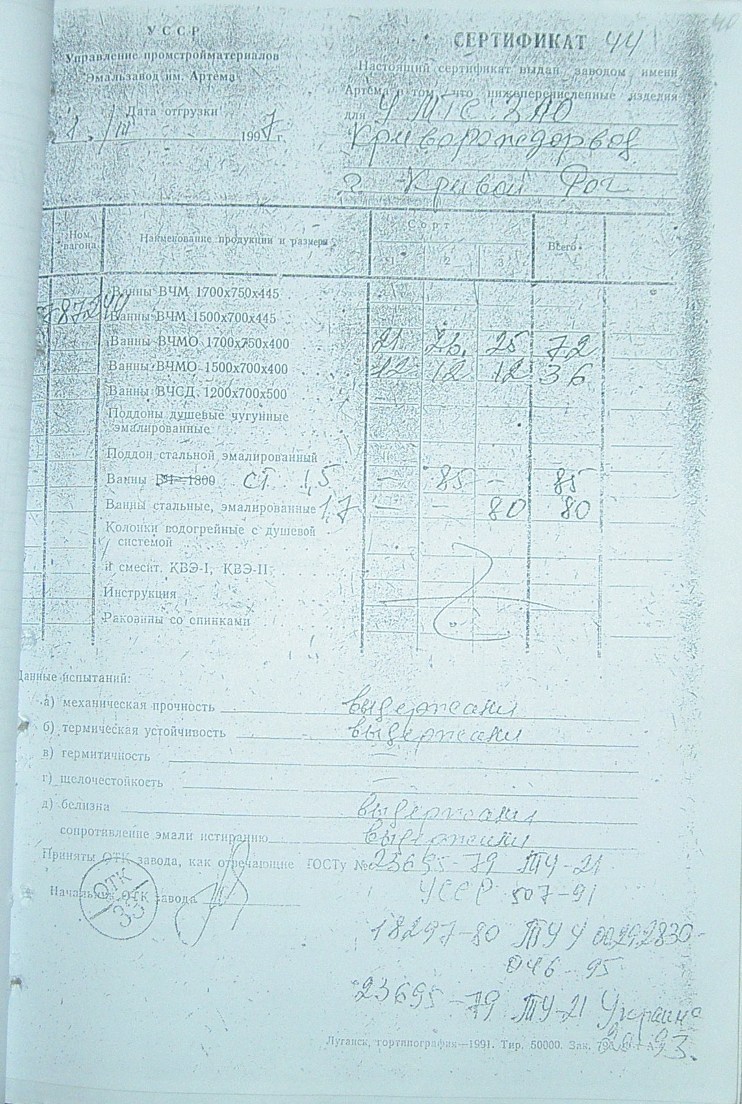 УССР
Управление промстройматериалов
Эмальзавод им. Артема
Дата отгрузки
1. /III 1997 г.
СЕРТИФИКАТ 44
Настоящий сертификат выдан заводом имени
Артема в том, что нижеперечисленные изделия
для УМТС ЗАО
г Кривой Рог
Ном. вагона
Наименование продукции и размеры
Сорт
1 2 3
Всего
Ванны ВЧМ 1700х750х445
Ванны ВЧМ 1500х700х445
Ванны ВЧМО 1700х750х400 21 26 25 72
Ванны ВЧМО 1500х700х400 12 12 12 36
Ванны ВЧСД 1200х700х500
Поддоны душевые чугунные
эмалированные
Поддон стальной эмалированный
Ванны ВЧ-1800 СТ 1,5 — 85 — 85
Ванны стальные, эмалированные 1,7 — — 80 80
Колонки водогрейные с душевой
системой
и смесит. КВЭ-I, КВЭ-II
Инструкция
Раковины со спинками
Данные испытаний:
а) механическая прочность выдержали
б) термическая устойчивость выдержали
в) гермитичность —
г) щелочестойкость —
д) белизна выдержали
сопротивление эмали истиранию выдержали
Приняты ОТК завода, как отвечающие ГОСТу № 23695-79 ТУ-21
УССР 507-91
Начальник ОТК завода
ОТК
33
18297-80 ТУ У 00292830-
046-95
23695-79 ТУ-21 Украина
Луганск, гортипография—1991. Тир. 50000. Зак.